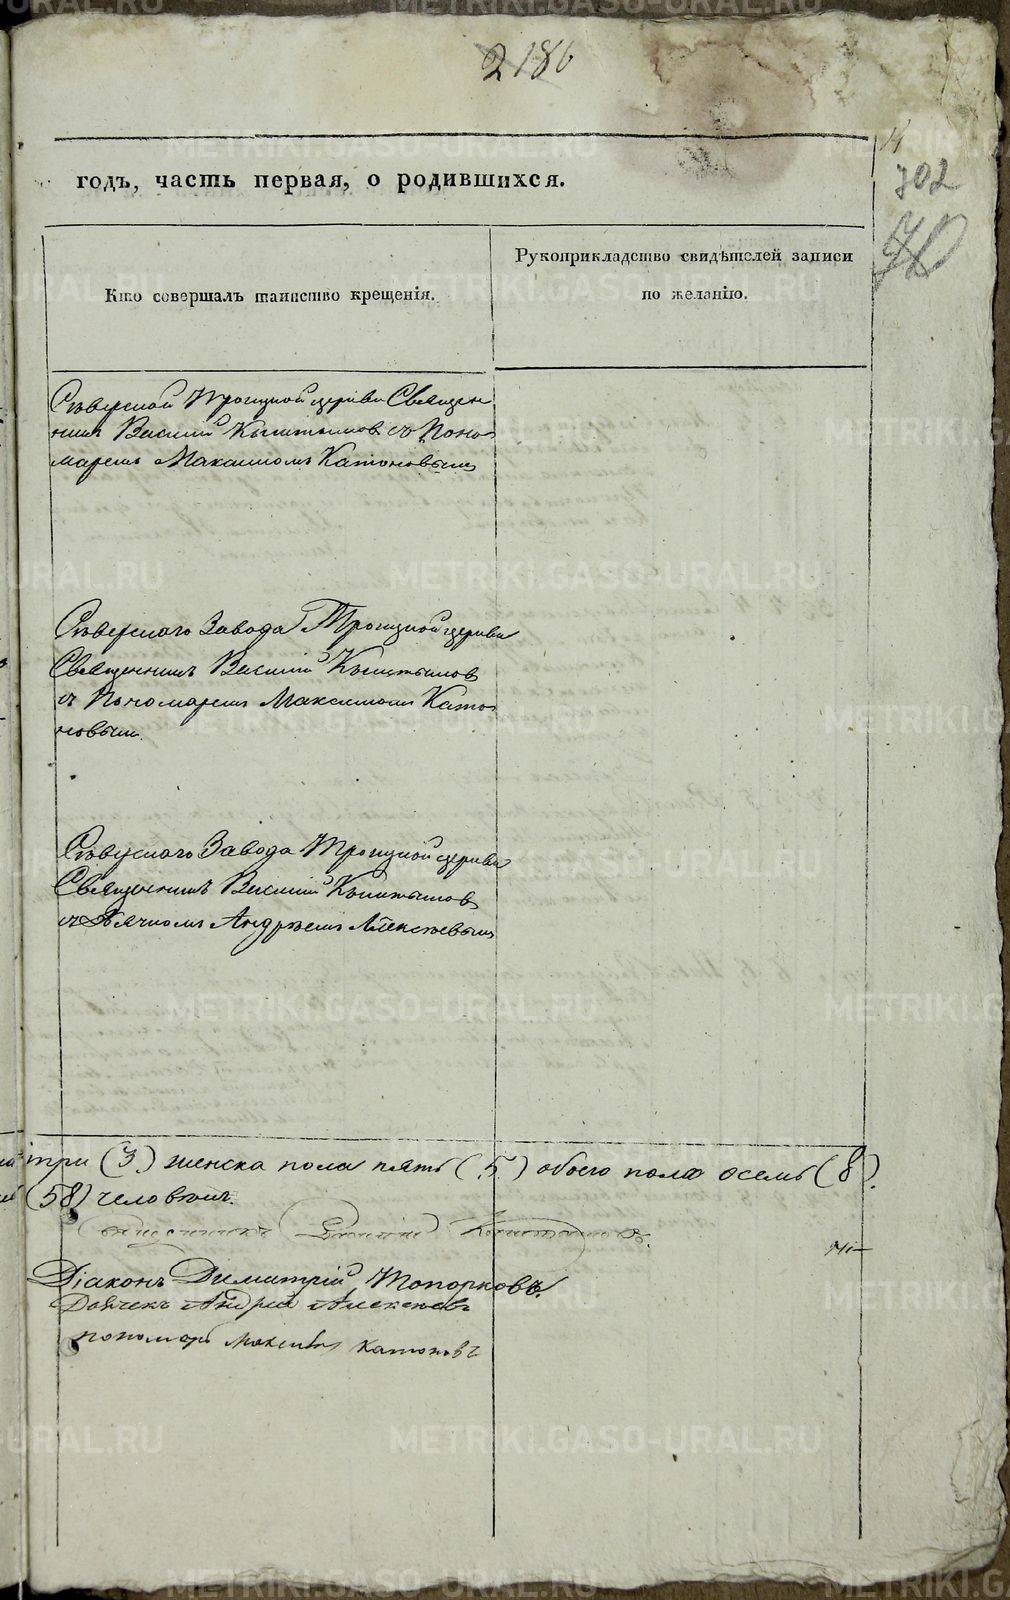 2186
702
годъ, часть первая, о родившихся.
Кто совершалъ таинство крещенія.
Рукоприкладство свидѣтелей записи
по желанію.
Сѣверской Троицкой церкви Священ
никъ Василій Кыштымовъ съ Поно
маремъ Максимомъ Катоновымъ
Сѣверскаго Завода Троицкой церкви
Священникъ Василій Кыштымовъ
съ Пономаремъ Максимомъ Като
новымъ.
Сѣверскаго Завода Троицкой церкви
Священникъ Василій Кыштымовъ
съ Дьячкомъ Андреемъ Алексѣевымъ
три (3.) женска пола пять (5.) обоего пола осемь (8).
(58) человѣкъ.
Священникъ Василій Кыштымовъ.
Діаконъ Димитрій Топорковъ.
Дьячекъ Андрей Алексѣевъ
пономарь Максимъ Катоновъ
METRIKI.GASO-URAL.RU